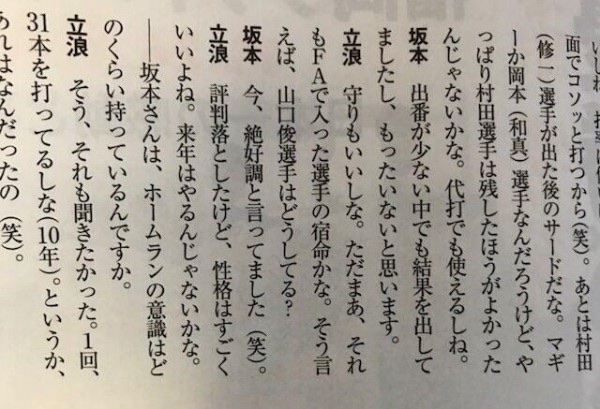 いしね。
面でコソッと打つから(笑)。あとは村田
(修一)選手が出た後のサードだな。マギ
ーか岡本(和真)選手なんだろうけど、や
っぱり村田選手は残したほうがよかった
んじゃないかな。代打でも使えるしね。
坂本　出番が少ない中でも結果を出して
ましたし、もったいないと思います。
立浪　守りもいいしな。ただまあ、それ
もFAで入った選手の宿命かな。そう言
えば、山口俊選手はどうしてる?
坂本　今、絶好調と言ってました(笑)。
立浪　評判落としたけど、性格はすごく
いいよね。来年はやるんじゃないかな。
――坂本さんは、ホームランの意識はど
のくらい持っているんですか。
立浪　そう、それも聞きたかった。1回、
31本を打ってるしな(10年)。というか、
あれはなんだったの(笑)。